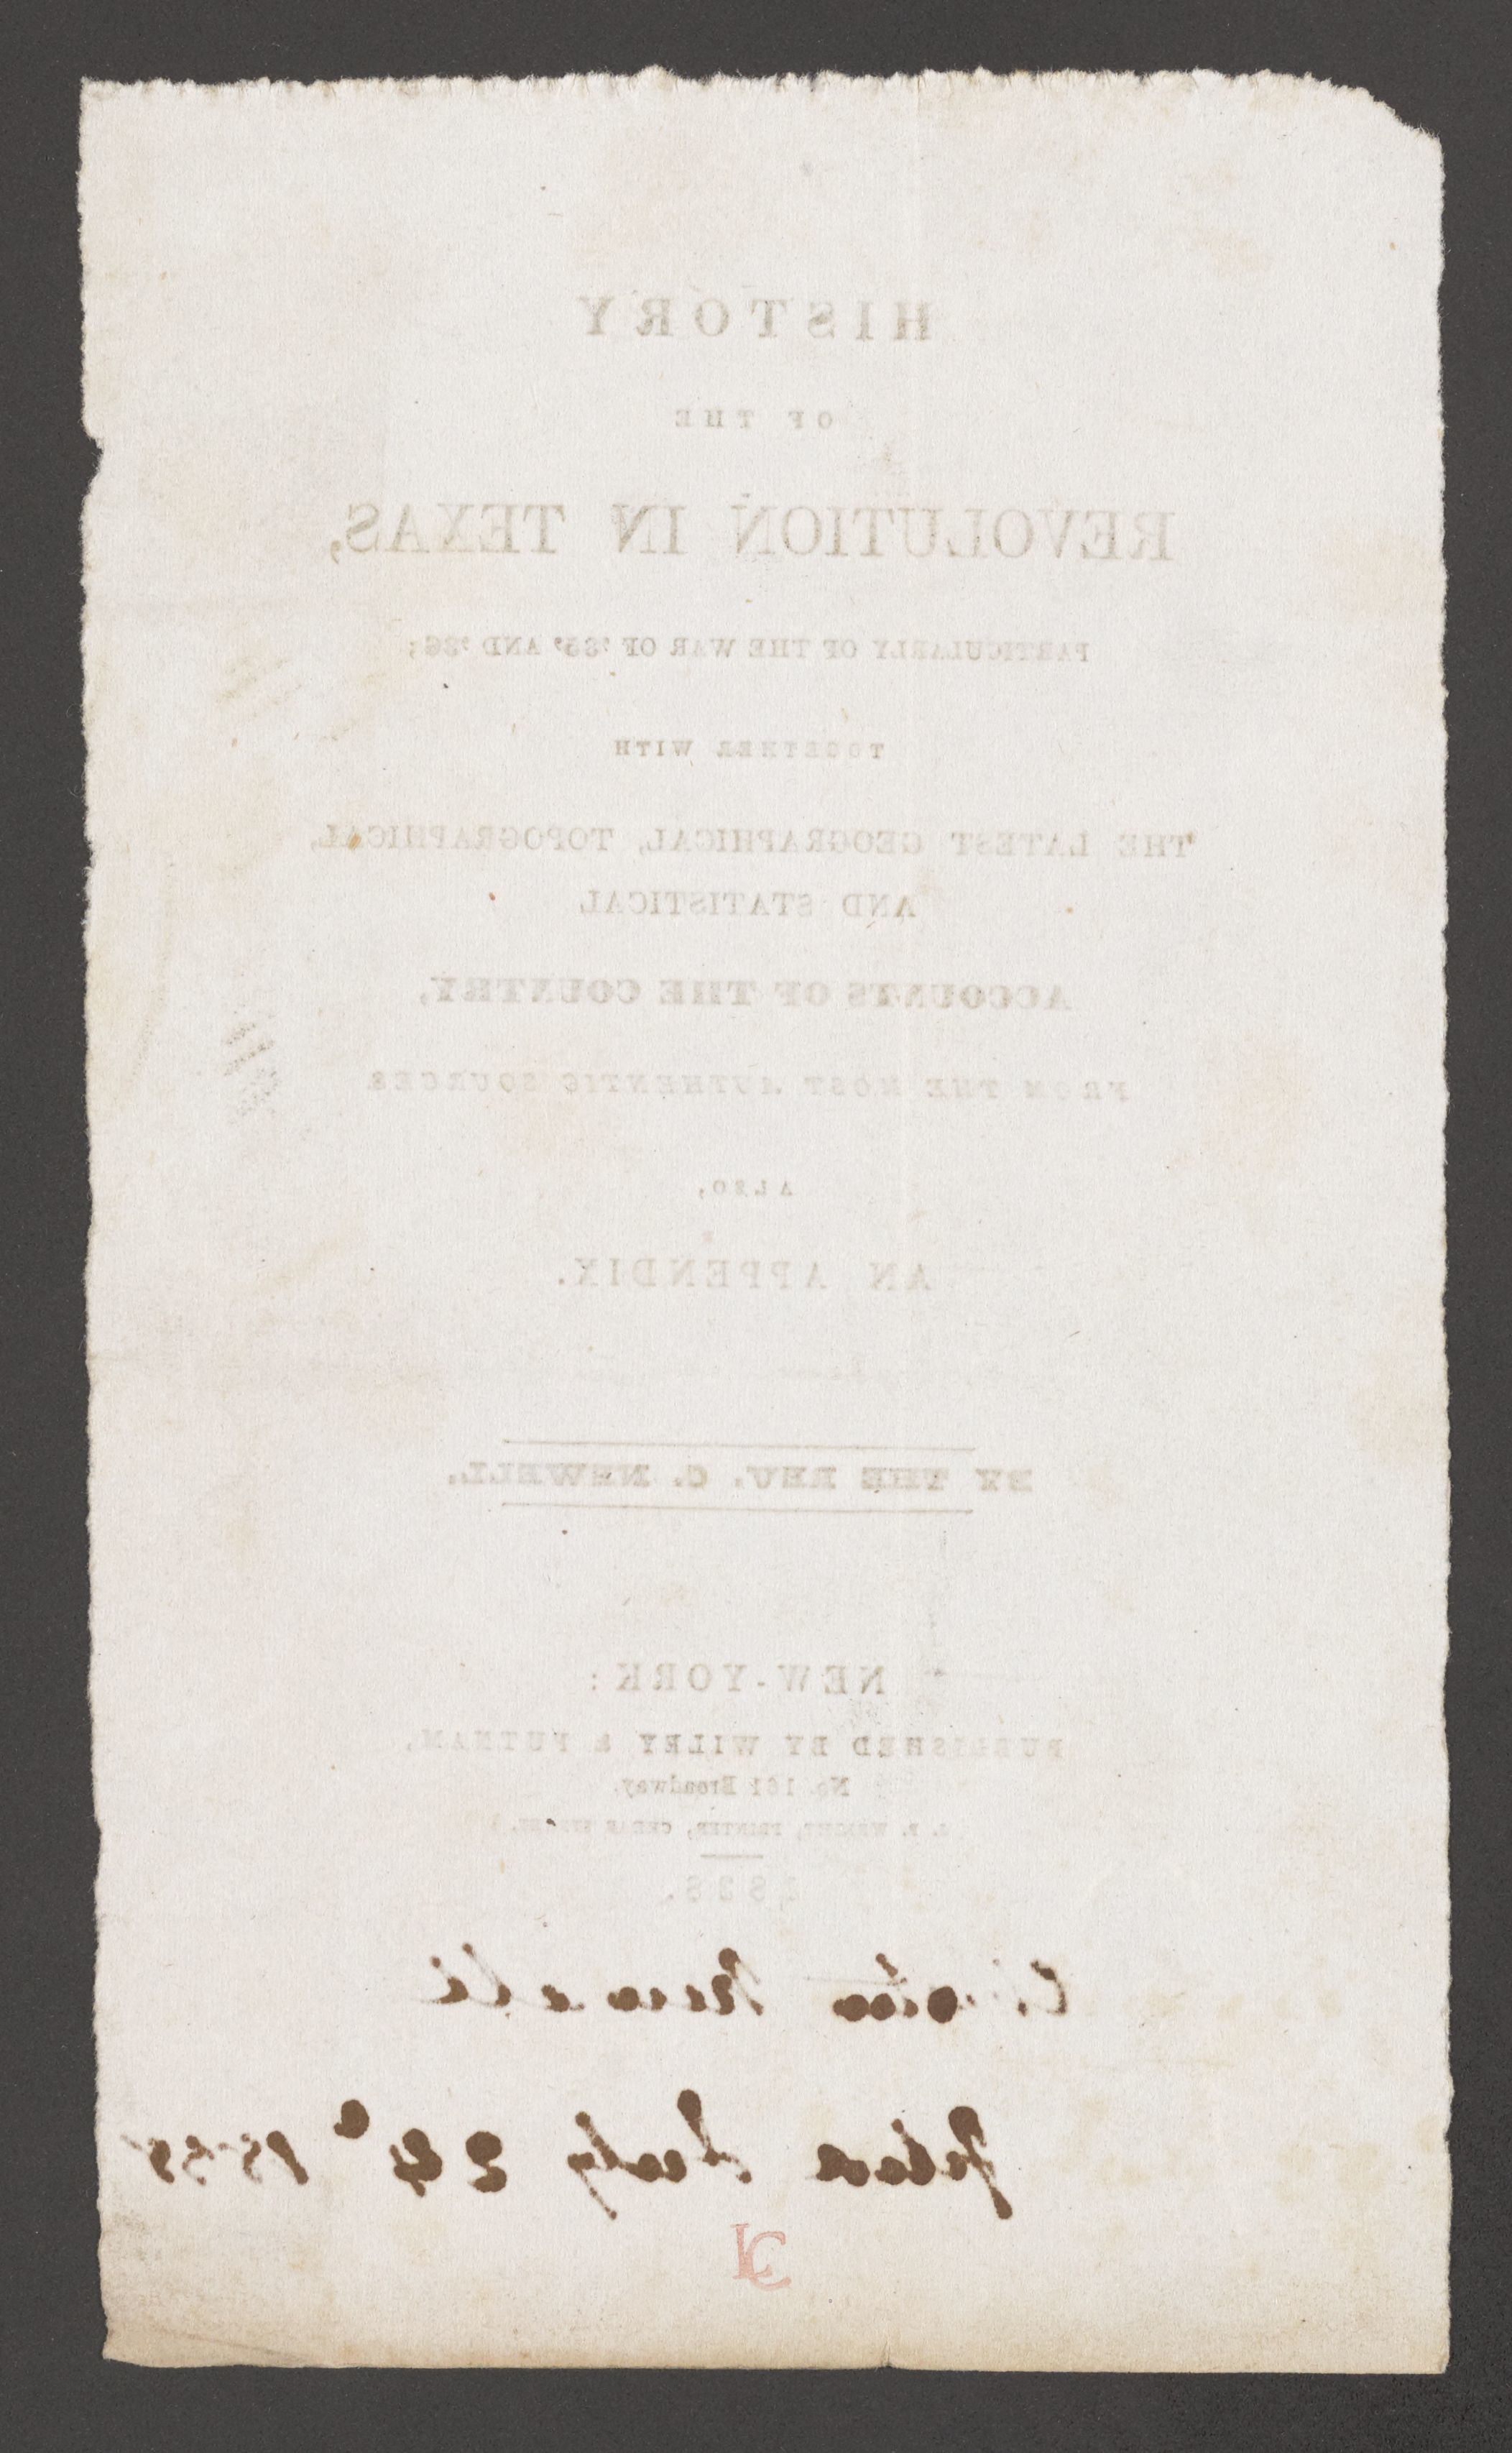 HISTORY
OF THE
REVOLUTION IN TEXAS,
PARTICULARLY OF THE WAR OF '35 AND '36;
TOGETHER WITH
THE LATEST GEOGRAPHICAL, TOPOGRAPHICAL,
AND STATISTICAL
ACCOUNTS OF THE COUNTRY,
FROM THE MOST AUTHENTIC SOURCES
ALSO,
AN APPENDIX.
BY THE REV. C. NEWELL.
NEW-YORK:
PUBLISHED BY WILEY & PUTNAM,
No. 161 Broadway.
J. P. WRIGHT, PRINTER, CEDAR STREET.
1838.
July 24
LC